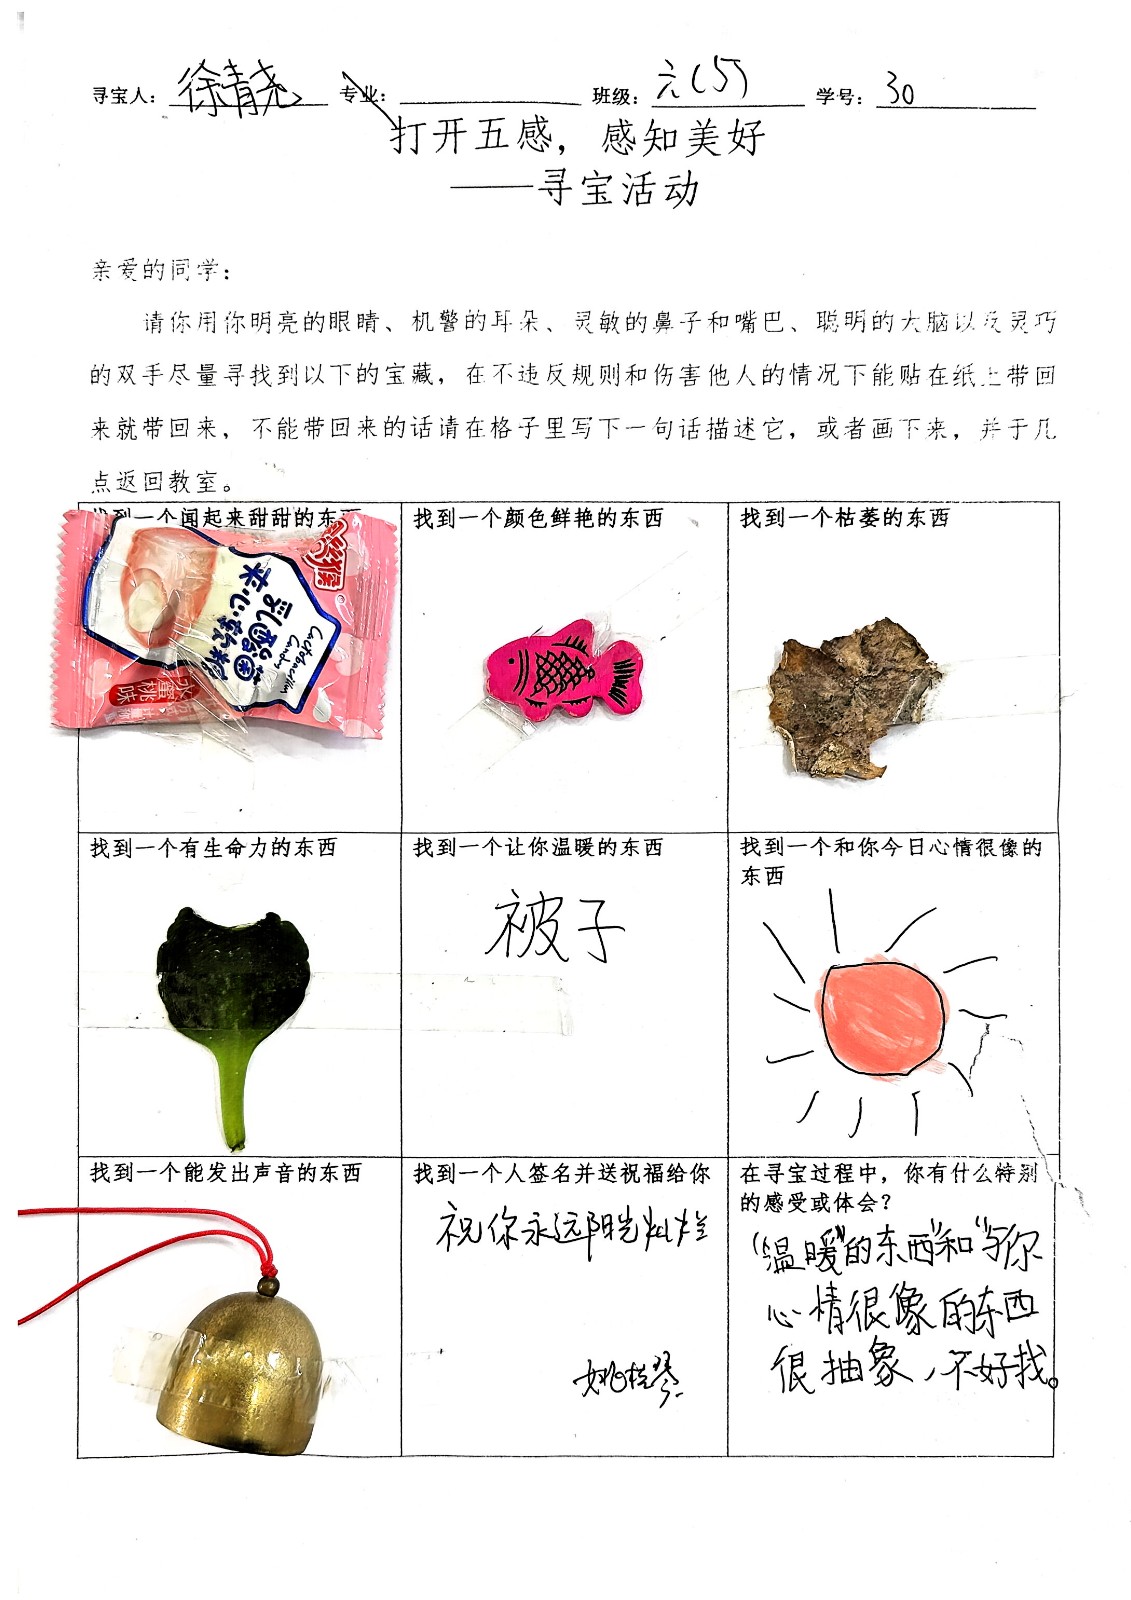 寻宝人：徐清尧 专业： 班级：六(5) 学号：30
打开五感，感知美好
——寻宝活动
亲爱的同学：
请你用你明亮的眼睛、机警的耳朵、灵敏的鼻子和嘴巴、聪明的大脑以及灵巧
的双手尽量寻找到以下的宝藏，在不违反规则和伤害他人的情况下能贴在纸上带回
来就带回来，不能带回来的话请在格子里写下一句话描述它，或者画下来，并于几
点返回教室。
找到一个闻起来甜甜的东西
夹心软糖
乳酸菌
Lactobacillus
Candy
水蜜桃味
找到一个颜色鲜艳的东西
找到一个枯萎的东西
找到一个有生命力的东西
找到一个让你温暖的东西
被子
找到一个和你今日心情很像的
东西
找到一个能发出声音的东西
找到一个人签名并送祝福给你
祝你永远阳光灿烂
姚桂琴
在寻宝过程中，你有什么特别
的感受或体会？
“温暖”的东西”和“与你
心情很像的东西
很抽象，不好找。